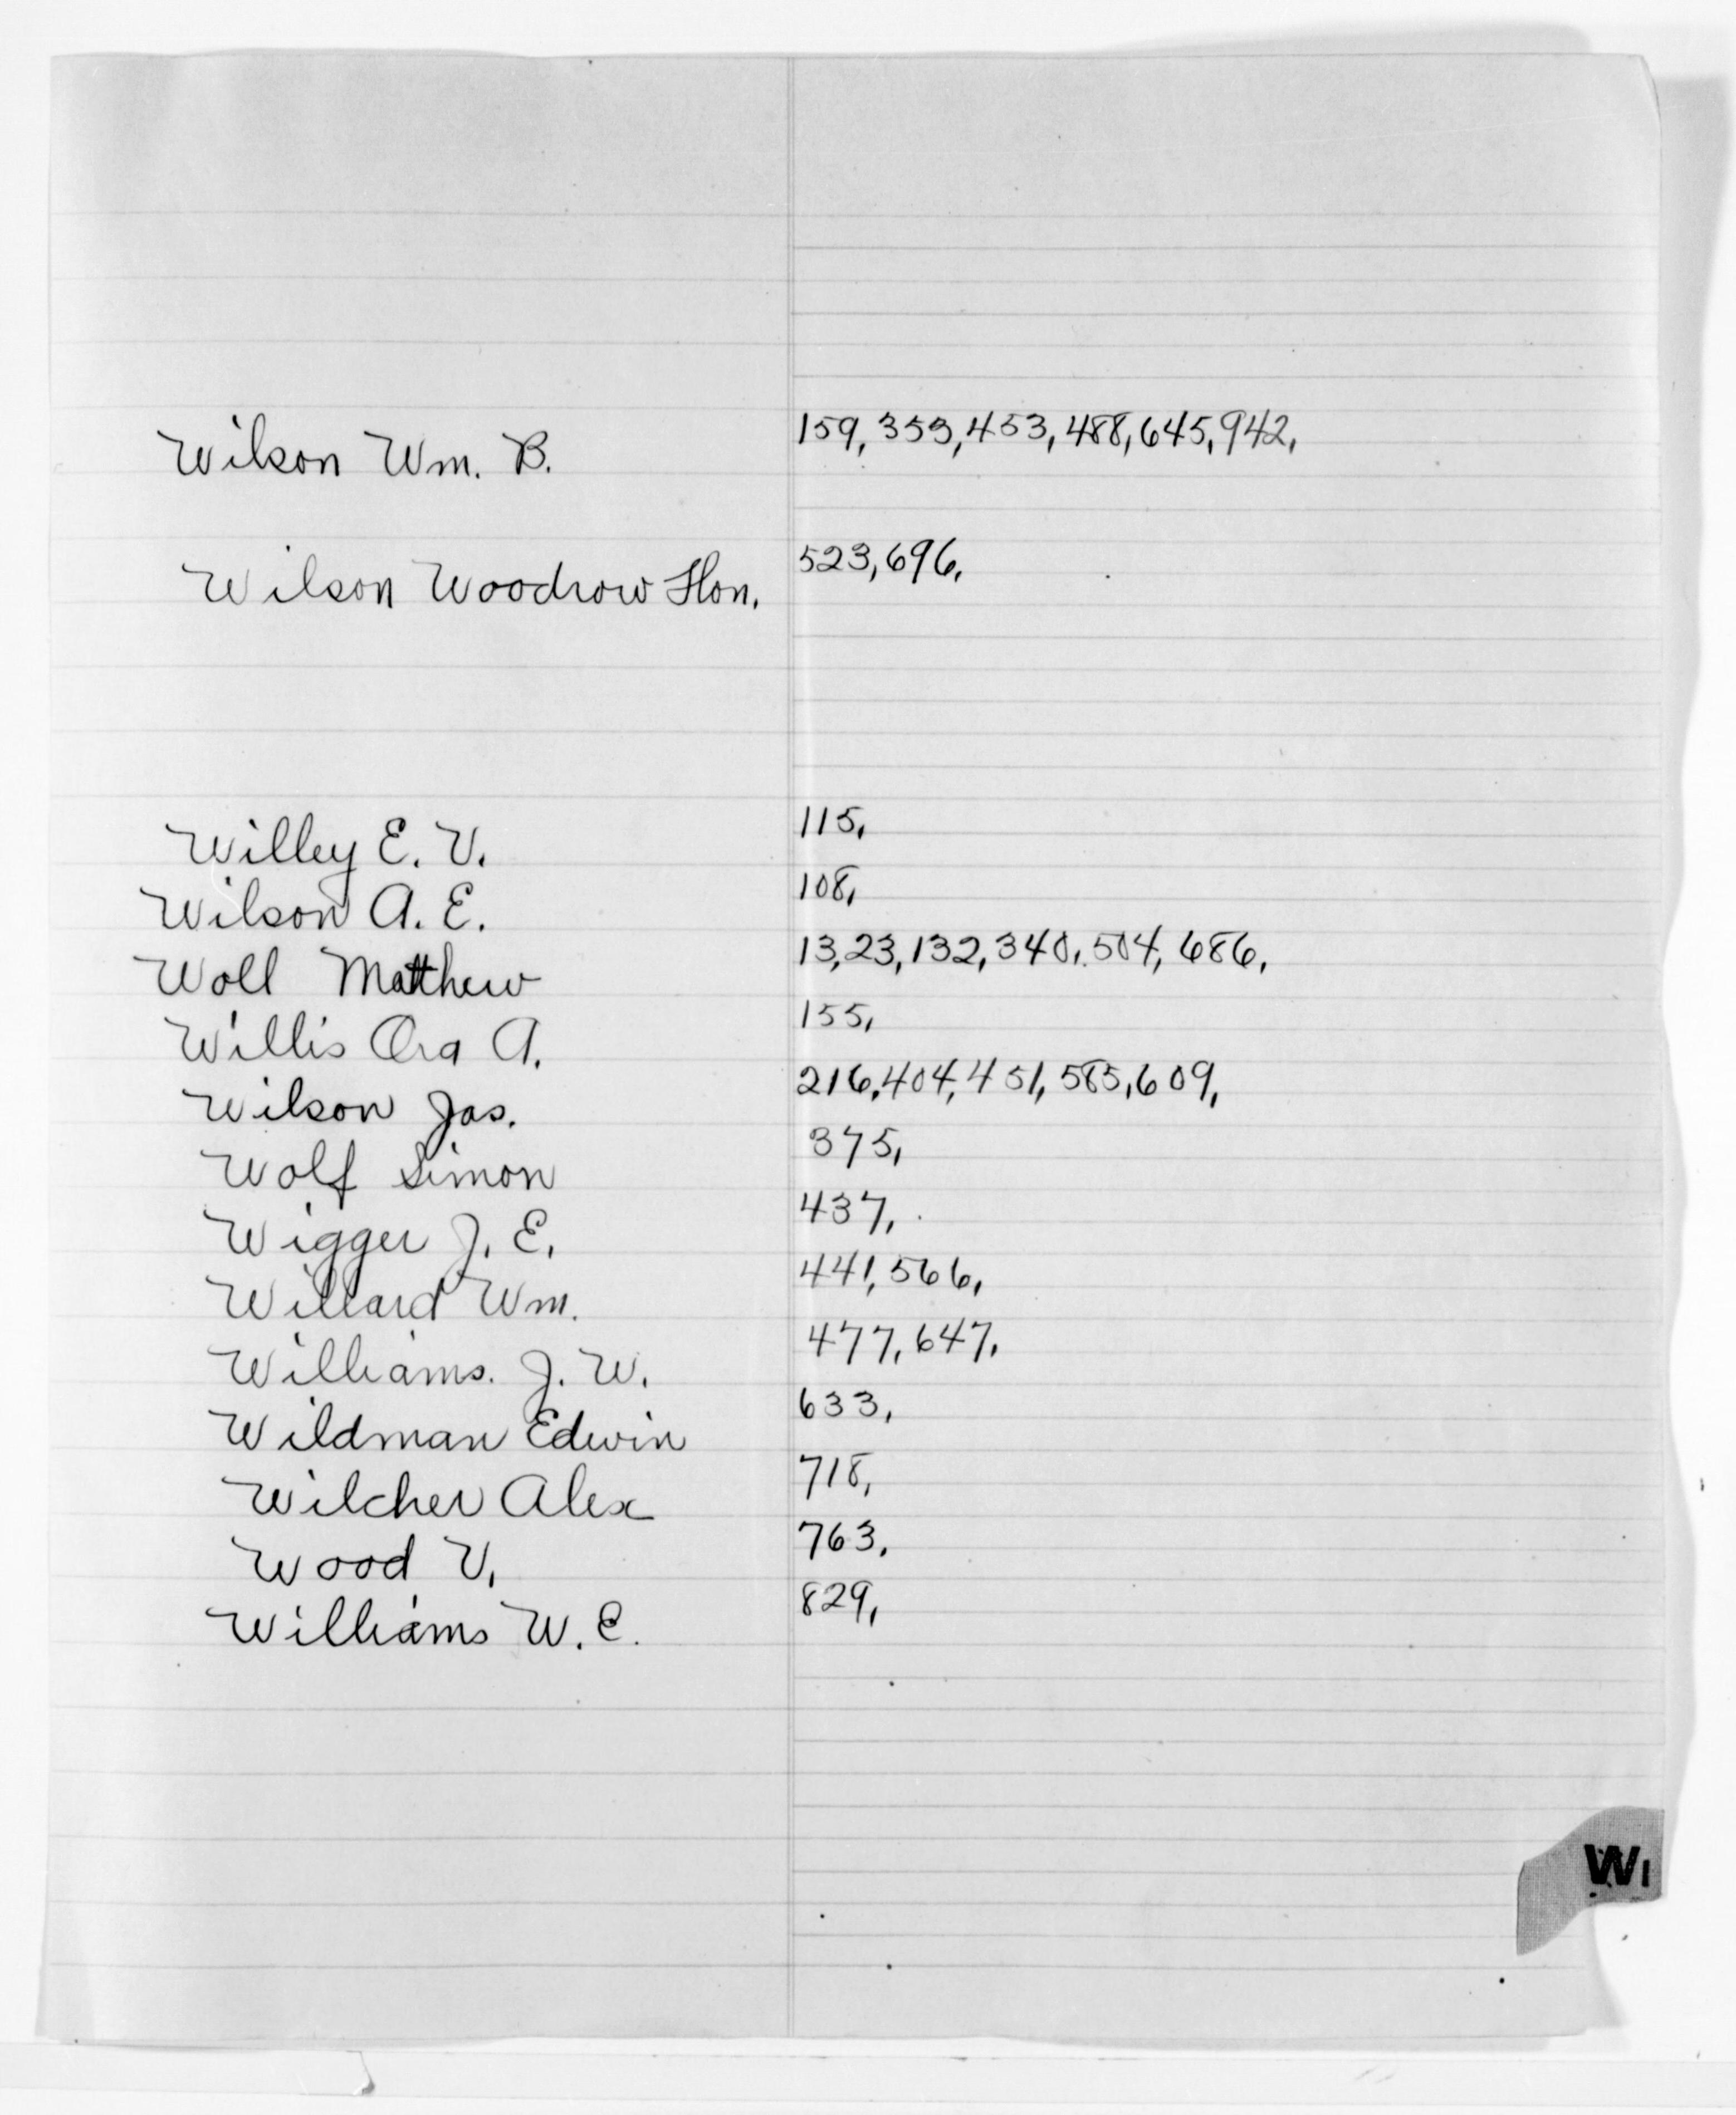 Wilson Wm. B. 159, 353, 453, 488, 645, 942,
Wilson Woodrow Hon. 523, 696,
Willey E. V. 115,
Wilson A. E. 108,
Woll Matthew 13, 23, 132, 340, 504, 686,
Willis Ora A. 155,
Wilson Jas. 216, 404, 451, 585, 609,
Wolf Simon 375,
Wigger J. E. 437,
Willard Wm. 441, 566,
Williams. J. W. 477, 647,
Wildman Edwin 633,
Wilcher Alex 718,
Wood V. 763,
Williams W. E. 829,
Wi